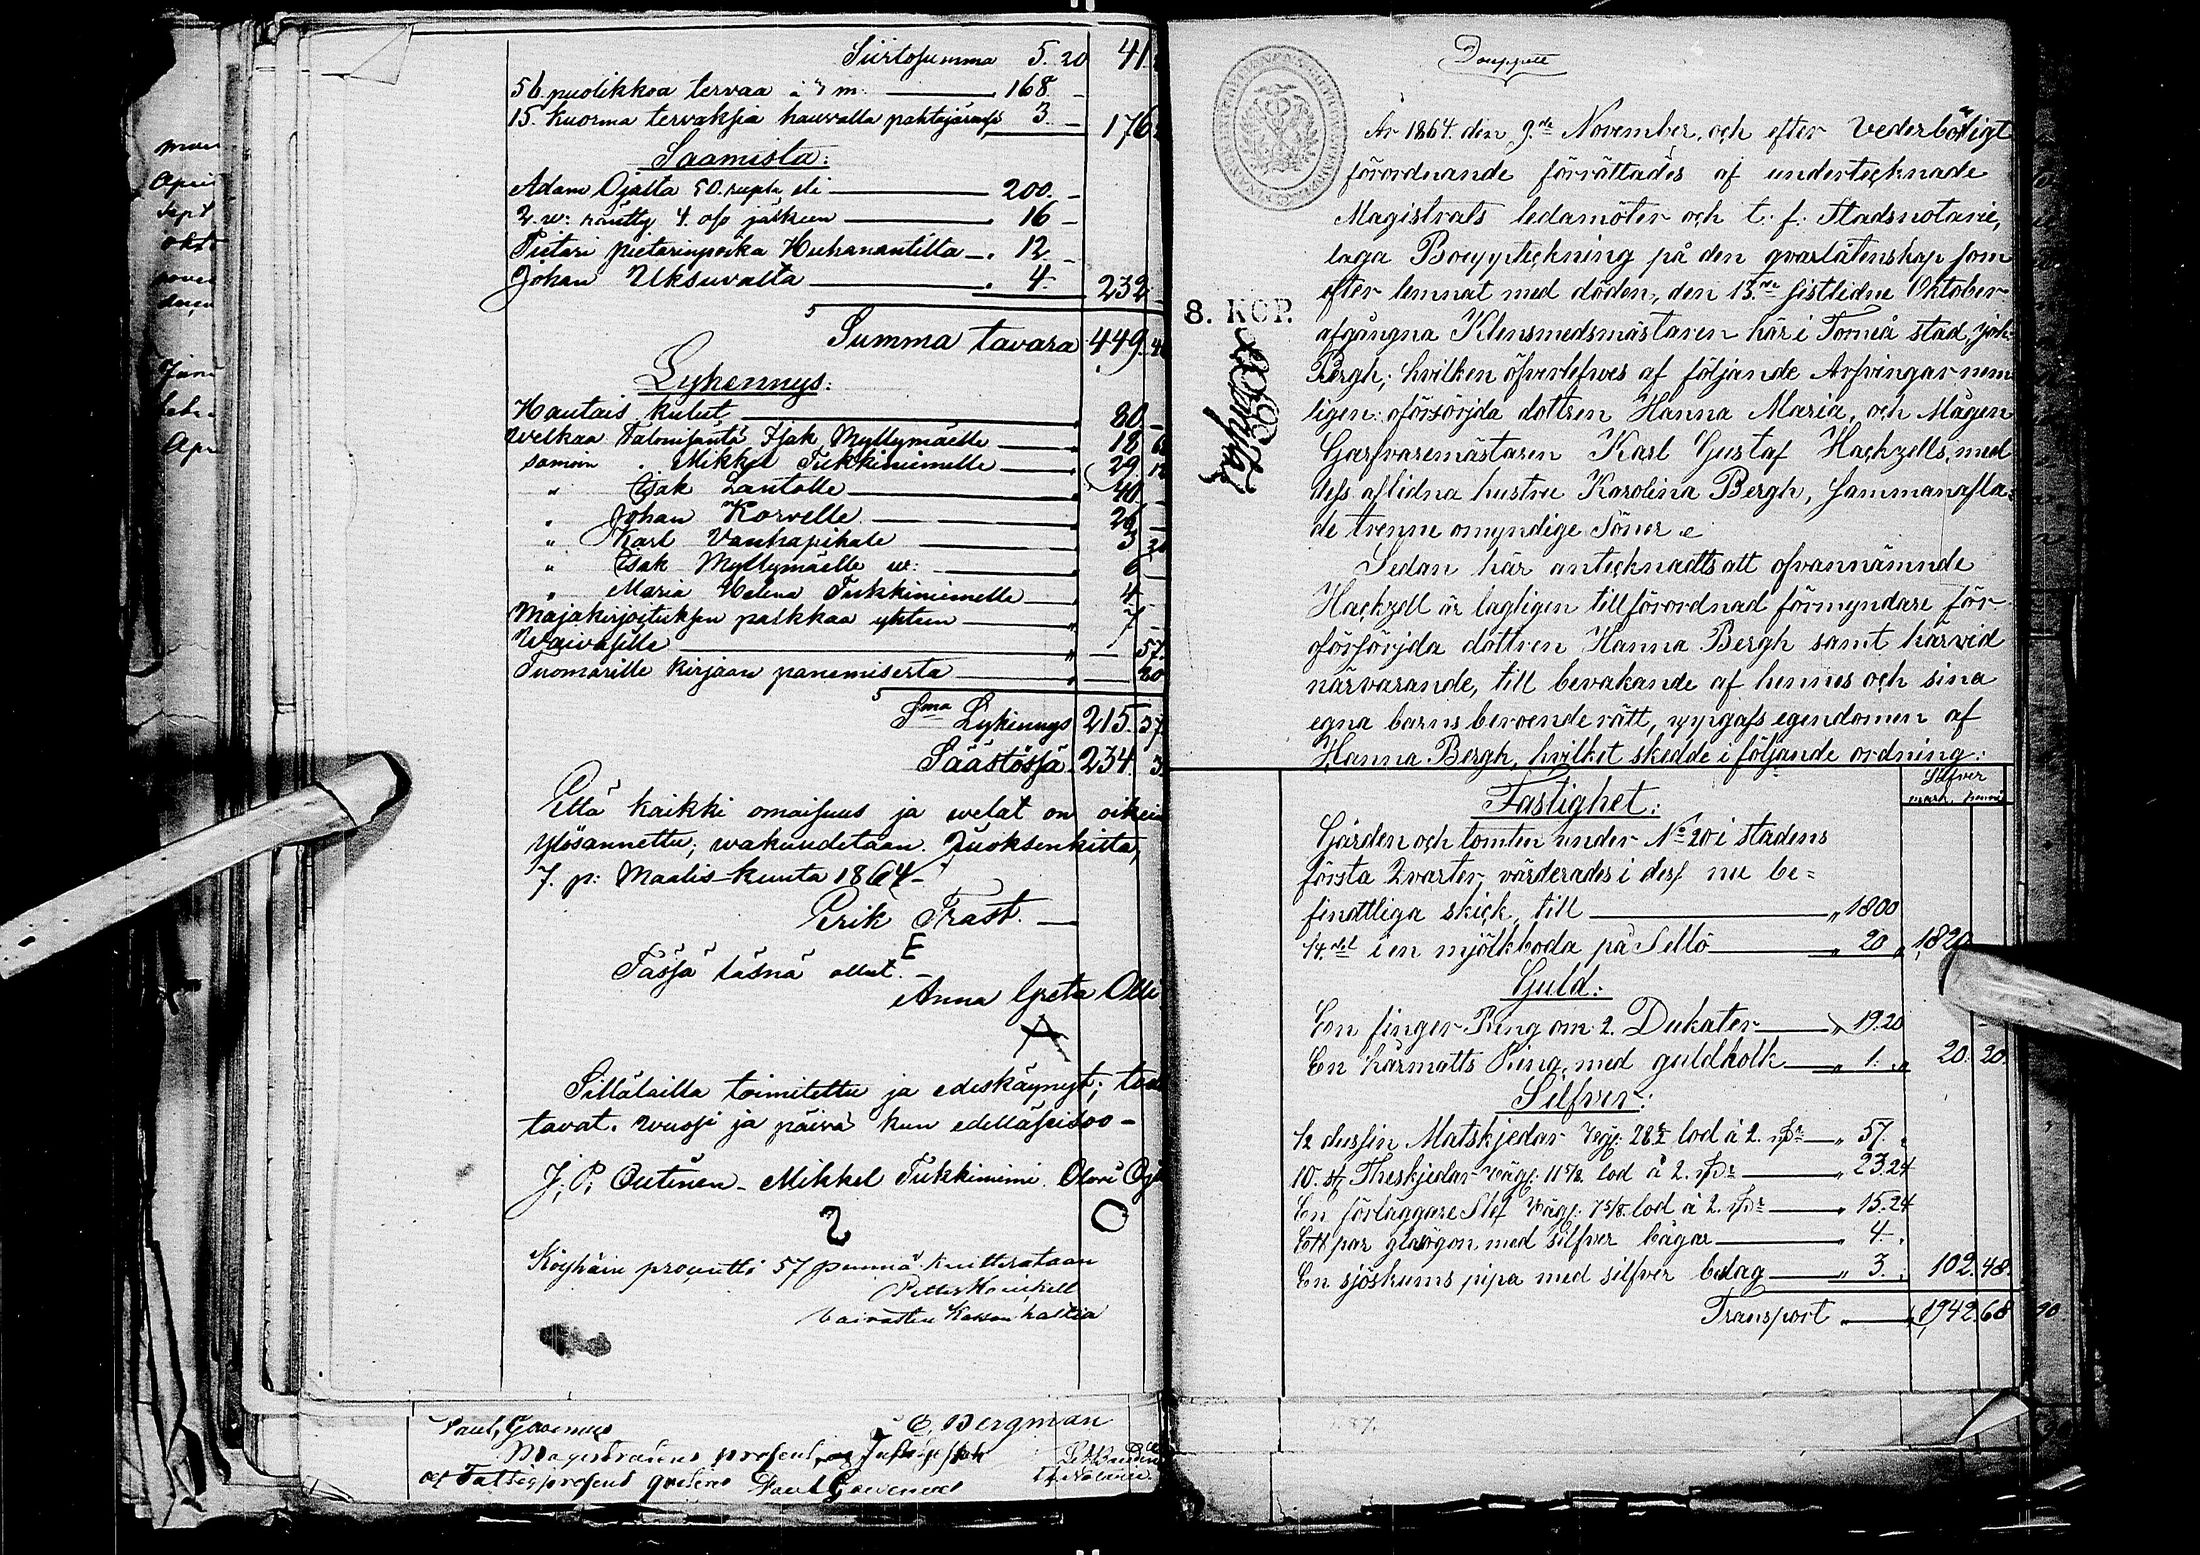 Siirtosumma 5. 20 41
56 puolikkoa tervaa à 3 m. 168 -
15. kuorma tervaksia hauvalla 3. - 176
Saamista:
Adam Ojalta 50. rupla eli 200. -
4. 16 -
Pietari pietarinpoika Huhanantilta 12 -
Johan Uksuvalta 4. 232 -
Summa tavara 449. 40
Lykennys:
Hautais kulut 80 -
Welkaa Talonisäntä Isak Myllymäelle 18 60
samoin Mikkel Tukkinimelle 29. 12
" Isak Lantolle 40 -
" Johan Korvelle 26 -
" Karl Vanhapihale 3 20
" Isak Myllymäelle w: 6 -
" Maria Helena Tukkinimelle 4 -
Majakirjoituksen palkkaa yhteen 7 -
Waivasille — 57.
Tuomarille kirjaan panemisesta — 20
Sma Lykennys 215. 57.
Säästössä 234. 3
Että kaikki omaisuus ja welat on oikein
ylösannettu, wakuudetaan. Juoksenkilta,
7. p: Maalis-kuuta 1864 -
Erik Frast. —
E
Tässä läsnä ollut. -
Anna Greta Olli
A
Sillälailla toimitettu ja edeskäynyt; todis
tavat. wuosi ja päivä kun edelläseisoo -
J: P: Outinen - Mikkel Tukkinimi. Olovi Oja
2 O
Köyhäin prosentti 57 penniä kuitterataan
Petter Heinkell
vaivasten Kassan haltia
Paul Govenius E. Bergman
Magistratens
Paul Govenius
Bouppt
År 1864. den 9.de November, och efter Vederbörligt
förordnande förrättades af undertecknade
Magistrats ledamöter och t. f. Stadsnotarie,
laga Bouppteckning på den qvarlåtenskap som
efter lemnat med döden, den 13.de sistlidne Oktober
8. KOP.
afgångna Klensmedsmästaren här i Torneå stad, Joh.
Bergh; hvilken öfverlefwes af följande Arfvingar nem-
ligen: oförsörjda dottren Hanna Maria, och Mågen
Garfvaremästaren Karl Gustaf Hackzells, med
dess aflidna hustru Karolina Bergh, sammanafla-
de trenne omyndige Söner. e
Sedan här antecknadts att ofvannämnde
Hackzell är lagligen tillförordnad förmyndare för
oförsörjda dottren Hanna Bergh samt härvid
närvarande, till bevakande af hennes och sina
egna barns beroende rätt, uppgafs egendomen af
Hanna Bergh, hvilket skedde i följande ordning:
Silfver
mark. penni
Fastighet:
Gården och tomten under No 20 i stadens
första Qvarter, värderades i dess nu be=
findtliga skick, till " 1800
1/4.del i en mjölkboda på Sellö " 20 " 1,820
Guld:
En finger-Ring om 2. Dukater " 19. 20
En hårmatts Ring, med guldholk " 1. " 20. 20.
Silfver:
1/2 dussin Matskjedar väg: 28 1/2 lod à 2. " 57.
10. st Theskjedar väg: 11 5/8 lod à 2. " 23. 24
En förläggare Slef väg: 7 5/8. lod à 2. " 15. 24
Ett par glasögon med silfver bågar " 4.
En sjöskums pipa med silfver beslag " 3. 102. 48.
Transport 1,942. 68